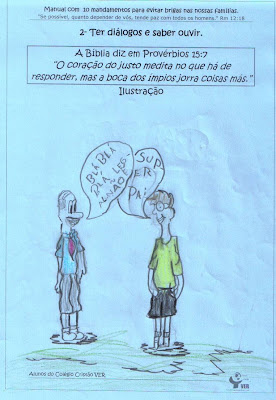 Manual com 10 mandamentos para evitar brigas nas nossas famílias.
"Se possível, quanto depender de vós, tende paz com todos os homens." Rm 12:18
2- Ter diálogos e saber ouvir.
A Bíblia diz em Provérbios 15:7
"O coração do justo medita no que há de
responder, mas a boca dos ímpios jorra coisas más."
Ilustração
BLÁ BLÁ
SUP
ER!
PÁ!
Alunos do Colégio Cristão VER
VER